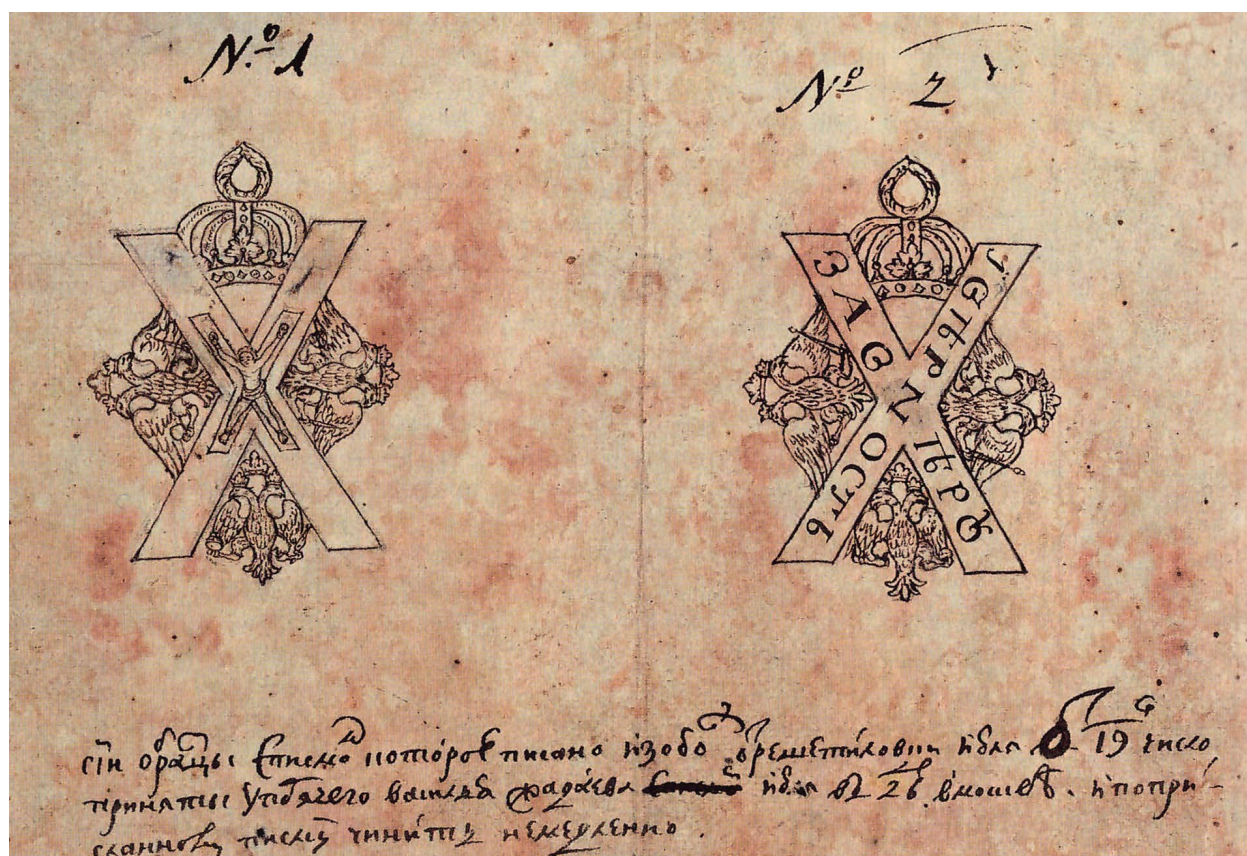 № 1
№ 2
ЗА ВѢРꙊ
І ВѢРNОСТЬ
сїи обрацы списмом которое писано из обозу решетиловки июля 19 число
приняты у подячего василья фадѣева июля въ 26 в москвѣ. и по при-
сланному писму чинить немедленно.